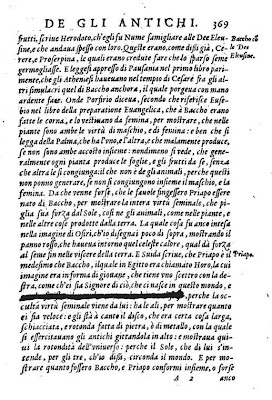 DE GLI ANTICHI. 369
frutti, scriue Herodoto, ch'egli fu Nume famigliare alle Dee Eleu-
sine, e che andaua spesso con loro. Queste erano, come dissi già, Ce-
rere, e Proserpina, le quali erano credute fare che lo sparso seme
germogliasse. E leggesi appresso di Pausania nel primo libro pari-
mente, che gli Atheniesi haueuano nel tempio di Cesare fra gli al-
tri simulacri quel di Baccho anchora, il quale porgeua con mano
ardente face. Onde Porfirio diceua, secondo che riferisce Euse-
bio nel libro della preparatione Euangelica, che à Baccho erano
fatte le corna, e lo vestiuano da femina, per mostrare, che nelle
piante sono ambe le virtù di maschio, e di femina: e ben che si
legga della Palma, che ha l'vno, e l'altra, che malamente produce,
se non sono ambo accolto insieme: nondimeno si vede, che gene-
ralmente ogni pianta produce le foglie, e gli frutti da se, senza
che altra le si congiunga: il che non è de gli animali, perche questi
non ponno generare, se non si congiungono insieme il maschio, e la
femina. Da che venne forse, che le fauole finsero Priapo essere
nato di Baccho, per mostrare la intera virtù seminale, che pi-
glia sua forza dal Sole, così ne gli animali, come nelle piante, e
nelle altre cose prodotte dalla terra. La qual cosa fu anco intesa
nella imagine di Osiri, ch'io disegnai poco di sopra, mostrando il
panno rosso, che haueua intorno quel celeste calore, qual dà forza
al seme fin nelle viscere della terra. E Suida scriue, che Priapo è il
medesimo che Baccho, il quale in Egitto era chiamato Horo, la cui
imagine era in forma di giouane, che tiene vno scettro con la de-
stra, come ch'ei sia Signore di ciò, che ci nasce in questo mondo, e
perche la oc-
culta virtù seminale viene da lui: ha le ali, per mostrare quanto
ei sia veloce: e gli stà à canto il disco, che era certa cosa larga,
schiacciata, e rotonda fatta di pietra, ò di metallo, con la quale
si essercitauano gli antichi gittandola in alto: e mostraua qui-
ui la rotondità dell'vniuerso: perche il Sole, che di lui s'in-
tende, per gli tre, ch'io dissi, circonda il mondo. E per mo-
strare quanto fossero Baccho, e Priapo conformi insieme, o forse
anco
Baccho con
le Dee
Eleusine
Priapo